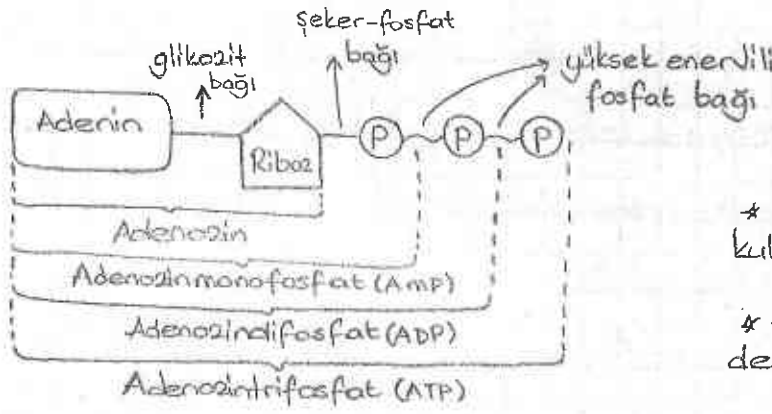 şeker-fosfat
bağı
glikozit
bağı
yüksek enerjili
fosfat bağı
Adenin
Riboz
P
P
P
Adenozin
Adenozinmonofosfat (AMP)
Adenozindifosfat (ADP)
Adenozintrifosfat (ATP)
*
kul
*
de